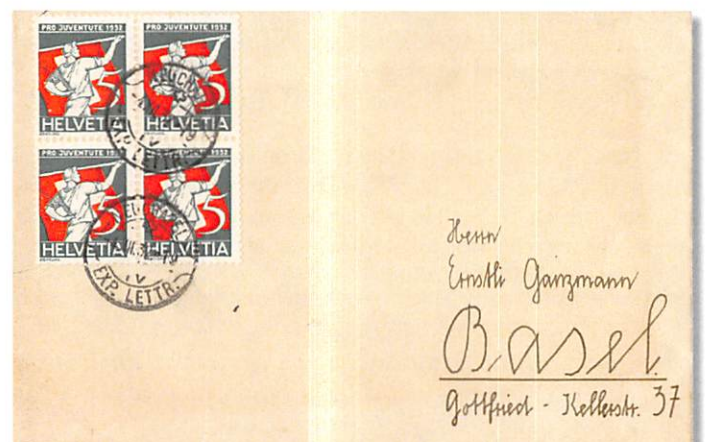 PRO JUVENTUTE 1932
5
HELVETIA
PRO JUVENTUTE 1932
5
HELVETIA
PRO JUVENTUTE 1932
5
HELVETIA
PRO JUVENTUTE 1932
5
HELVETIA
EXP. LETTR.
IV
EXP. LETTR.
IV
Herrn
Ernstli Ganzmann
Basel
Gottfried - Kellerstr. 37